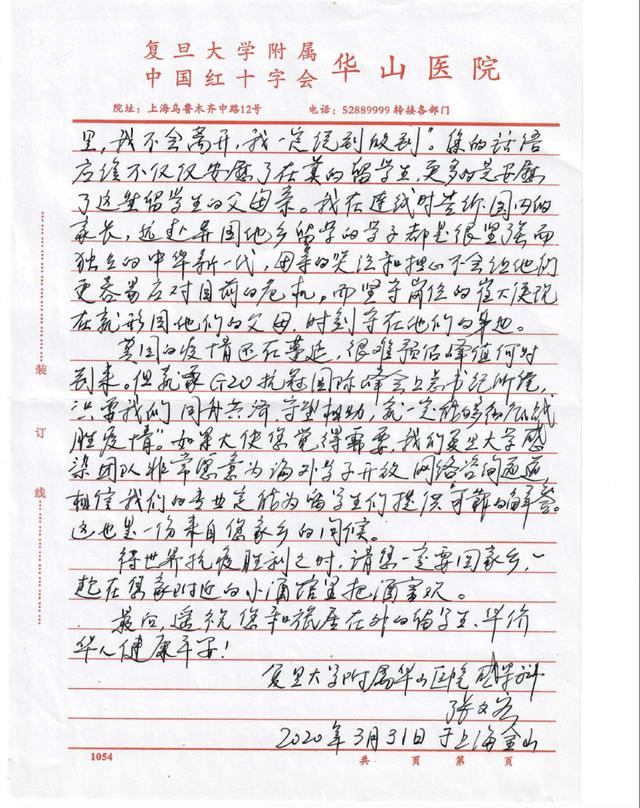 复旦大学附属
中国红十字会 华山医院
院址：上海乌鲁木齐中路12号 电话：52889999 转接各部门
里，我不会离开，我一定说到做到”。您的话语
应该不仅仅安慰了在英的留学生，更多的是安慰
了这些留学生的父母亲。我在连线时告诉国内的
家长，远赴异国他乡留学的学子都是很坚强而
独立的中华新一代，母亲的哭泣和担心不会给他们
更容易应对目前的危机，而坚守岗位的崔大使现
在就形同他们的父母，时刻守在他们的身边。
英国的疫情还在蔓延，很难预估峰值何时
到来。但就象G20抗冠国际峰会上总书记所信，
只要我们同舟共济、守望相助，就一定能够彻底战
胜疫情”。如果大使您觉得需要，我们复旦大学感
染团队非常愿意为海外学子开放网络咨询通道，
相信我们的专业定能为留学生们提供可靠的解答。
这也是一份来自您家乡的问候。
待世界抗疫胜利之时，请您一定要回家乡，一
起在您家附近的小酒馆里把酒言欢。
最后，遥祝您和旅居在外的留学生、华侨
华人健康平安！
复旦大学附属华山医院感染科
张文宏
2020年3月31日于上海金山
装
订
线
1054 共 页 第 页